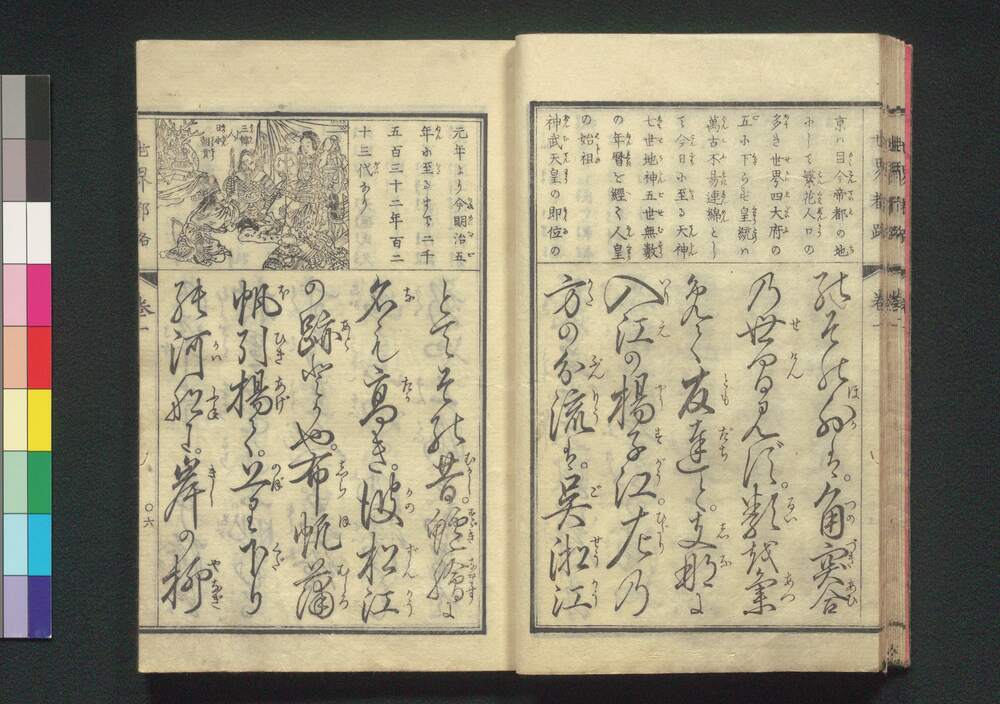 京ハ目今帝都の地
にして繁花人口の
多き世界四大府の
五に下らず皇統ハ
萬古不易連綿とし
て今日に至る天神
七世地神五世無數
の年暦を經て人皇
の始祖
神武天皇の即位の
乃世間見ず。類を集
免て友達と支那に
入江の揚子江左の
方の分流は呉淞江
元年より今明治五
年に至るまで二千
五百三十二年百二
十三代なり
三傑
人
時
とてその昔。鱸膾に
名も高き。彼松江
の跡とかや。布帆蒲
帆引揚て。上り下り
岸の柳
世界都路
巻一
〇六